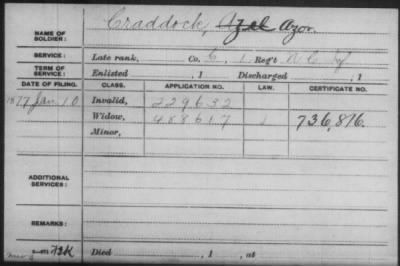 NAME OF SOLDIER: Craddock, Azel Azor.
SERVICE: Late rank, Co. C, 1 Reg't N.C. Inf
TERM OF SERVICE: Enlisted , 1 Discharged , 1
DATE OF FILING. CLASS. APPLICATION NO. LAW. CERTIFICATE NO.
1877 Jan. 10 Invalid, 229632
Widow, 488617 736,816.
Minor,
ADDITIONAL SERVICES:
REMARKS:
Died , 1 , at